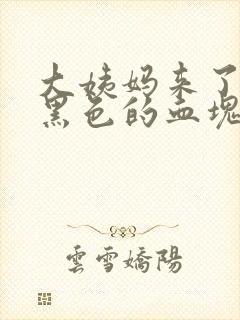 大姨妈来了
黑色的血块
雲雪嬌陽